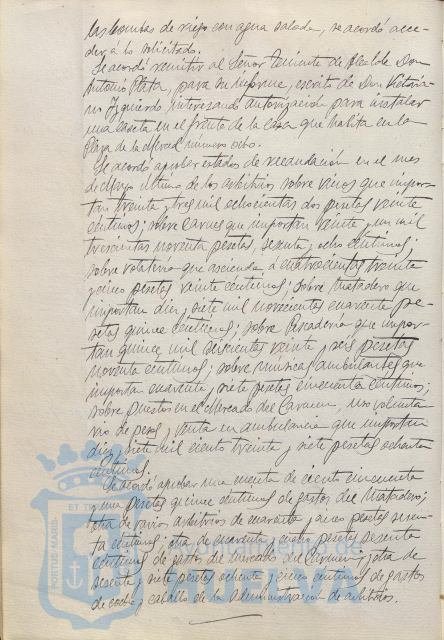 las bombas de riego con agua salada, se acordó acce-
der á lo solicitado.
Se acordó remitir al Señor Teniente de Alcalde Don
Antonio Mata, para su informe, escrito de Don Victoria-
no Izquierdo interesando autorización para instalar
una caseta en el frente de la casa que habita en la
Plaza de la Merced número ocho.
Se acordó aprobar estados de recaudación en el mes
de Mayo último de los arbitrios sobre vinos que impor-
tan treinta y tres mil ochocientas dos pesetas veinte
céntimos; sobre carnes que importan veinte y un mil
trescientas noventa pesetas sesenta y ocho céntimos;
sobre que asciende á cuatrocientas treinta
y cinco pesetas veinte céntimos; sobre Matadero que
importan diez y siete mil novecientas cuarenta pe-
setas quince céntimos; sobre Pescadería que impor-
tan quince mil doscientas veinte y seis pesetas
noventa céntimos; sobre músicas ambulantes que
importan cuarenta y siete pesetas cincuenta céntimos;
sobre puestos en el Mercado del Carmen, uso volunta-
rio de peso y venta en ambulancia que importan
diez y siete mil ciento treinta y siete pesetas ochenta
céntimos.
Se acordó aprobar una cuenta de ciento cincuenta
y una pesetas quince céntimos de gastos del Matadero;
otra de varios arbitrios de cuarenta y cinco pesetas sesen-
ta céntimos; otra de cuarenta y pesetas sesenta
céntimos de gastos del mercado del Carmen y otra de
sesenta y siete pesetas ochenta y cinco céntimos de gastos
de coche y caballo de la Administración de arbitrios.
PORTUS MARIS ET TE
Ayuntamiento de
HUELVA